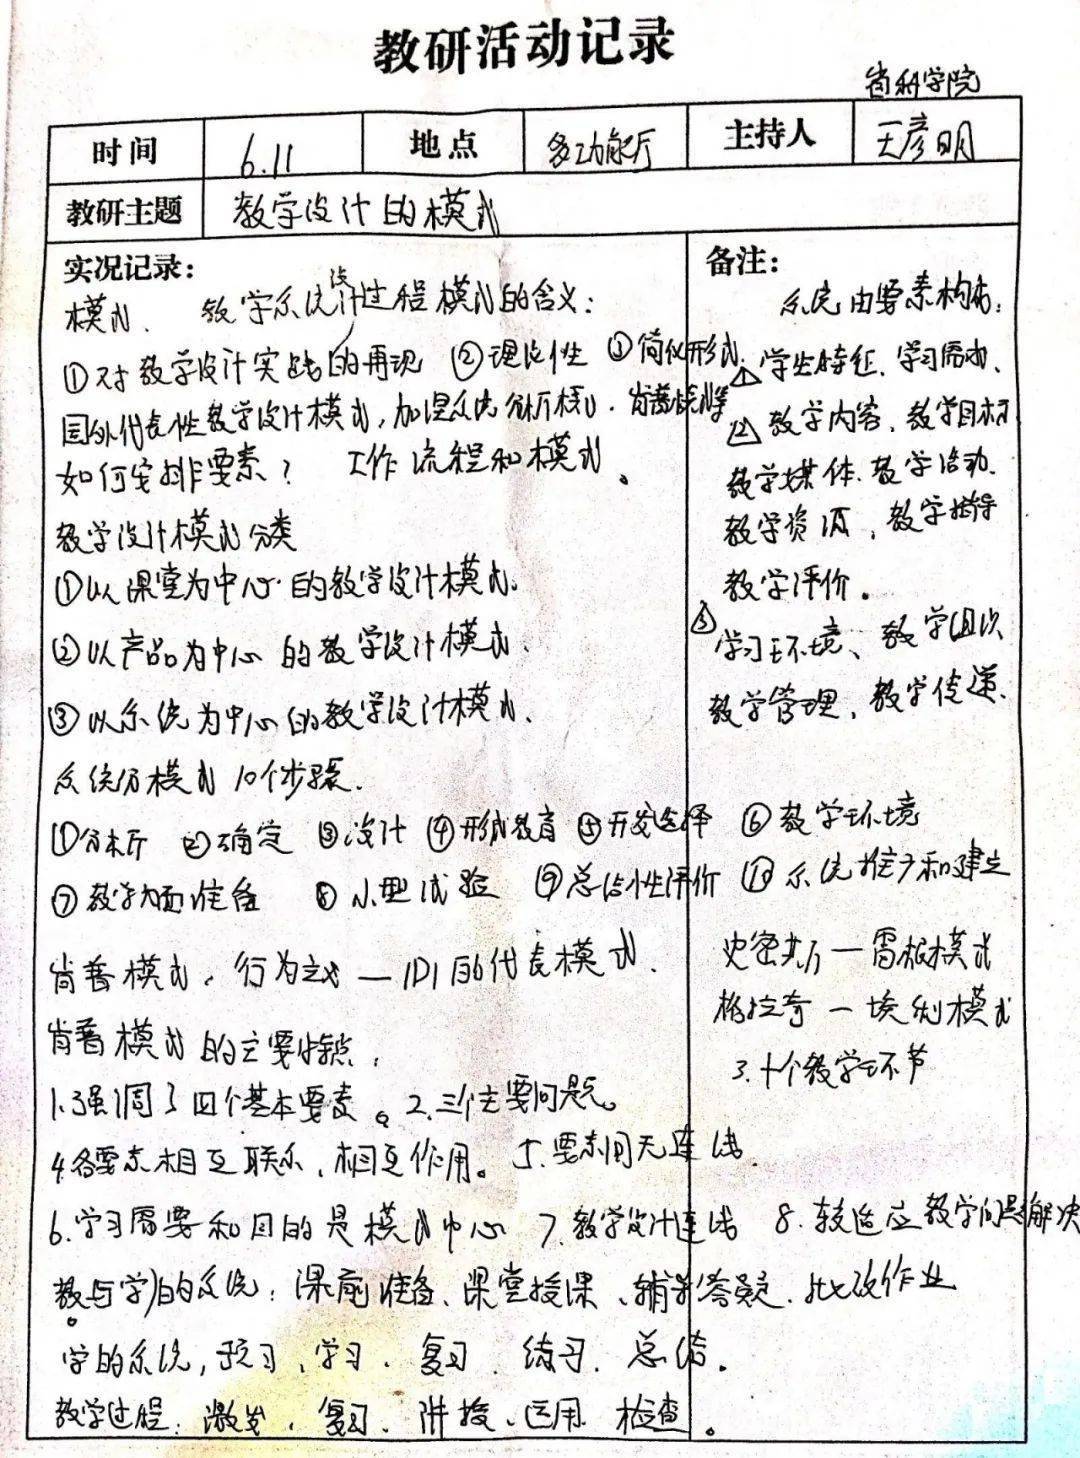 教研活动记录
省科学院
时间 6.11 地点 多功能厅 主持人 王彦明
教研主题 教学设计的模式
实况记录：
模式、教学系统设计过程模式的含义：
①对教学设计实践的再现 ②理论性 ③简化形式.
国外代表性教学设计模式,加涅系统分析模式、肯普模式等
如何安排要素? 工作流程和模式。
教学设计模式分类
①以课堂为中心的教学设计模式.
②以产品为中心的教学设计模式.
③以系统为中心的教学设计模式.
系统分模式10个步骤.
备注：
系统由要素构成：
△1 学生特征、学习需求、
△2 教学内容、教学目标
教学媒体、教学活动、
教学资源、教学指导
教学评价。
△3 学习环境、教学组织
教学管理、教学传递.
①分析 ②确定 ③设计 ④形成教育 ⑤开发选择 ⑥教学环境
⑦教学方面准备 ⑧小型试验 ⑨总结性评价 ⑩系统推广和建立
肯普模式、行为主义—IDI的代表模式.
肯普模式的主要特点：
1.强调了四个基本要素。2.三个主要问题。
4.各要素相互联系、相互作用。5.要素间无连线
史密斯—雷根模式
格拉奇—埃利模式
3.十个教学环节
6.学习需要和目的是模式中心 7.教学设计连线 8.较适应教学问题解决
教与学的系统：课前准备、课堂授课、辅导答疑、批改作业
学的系统,预习、学习、复习、练习、总结。
教学过程：激发、复习、讲授、运用、检查。